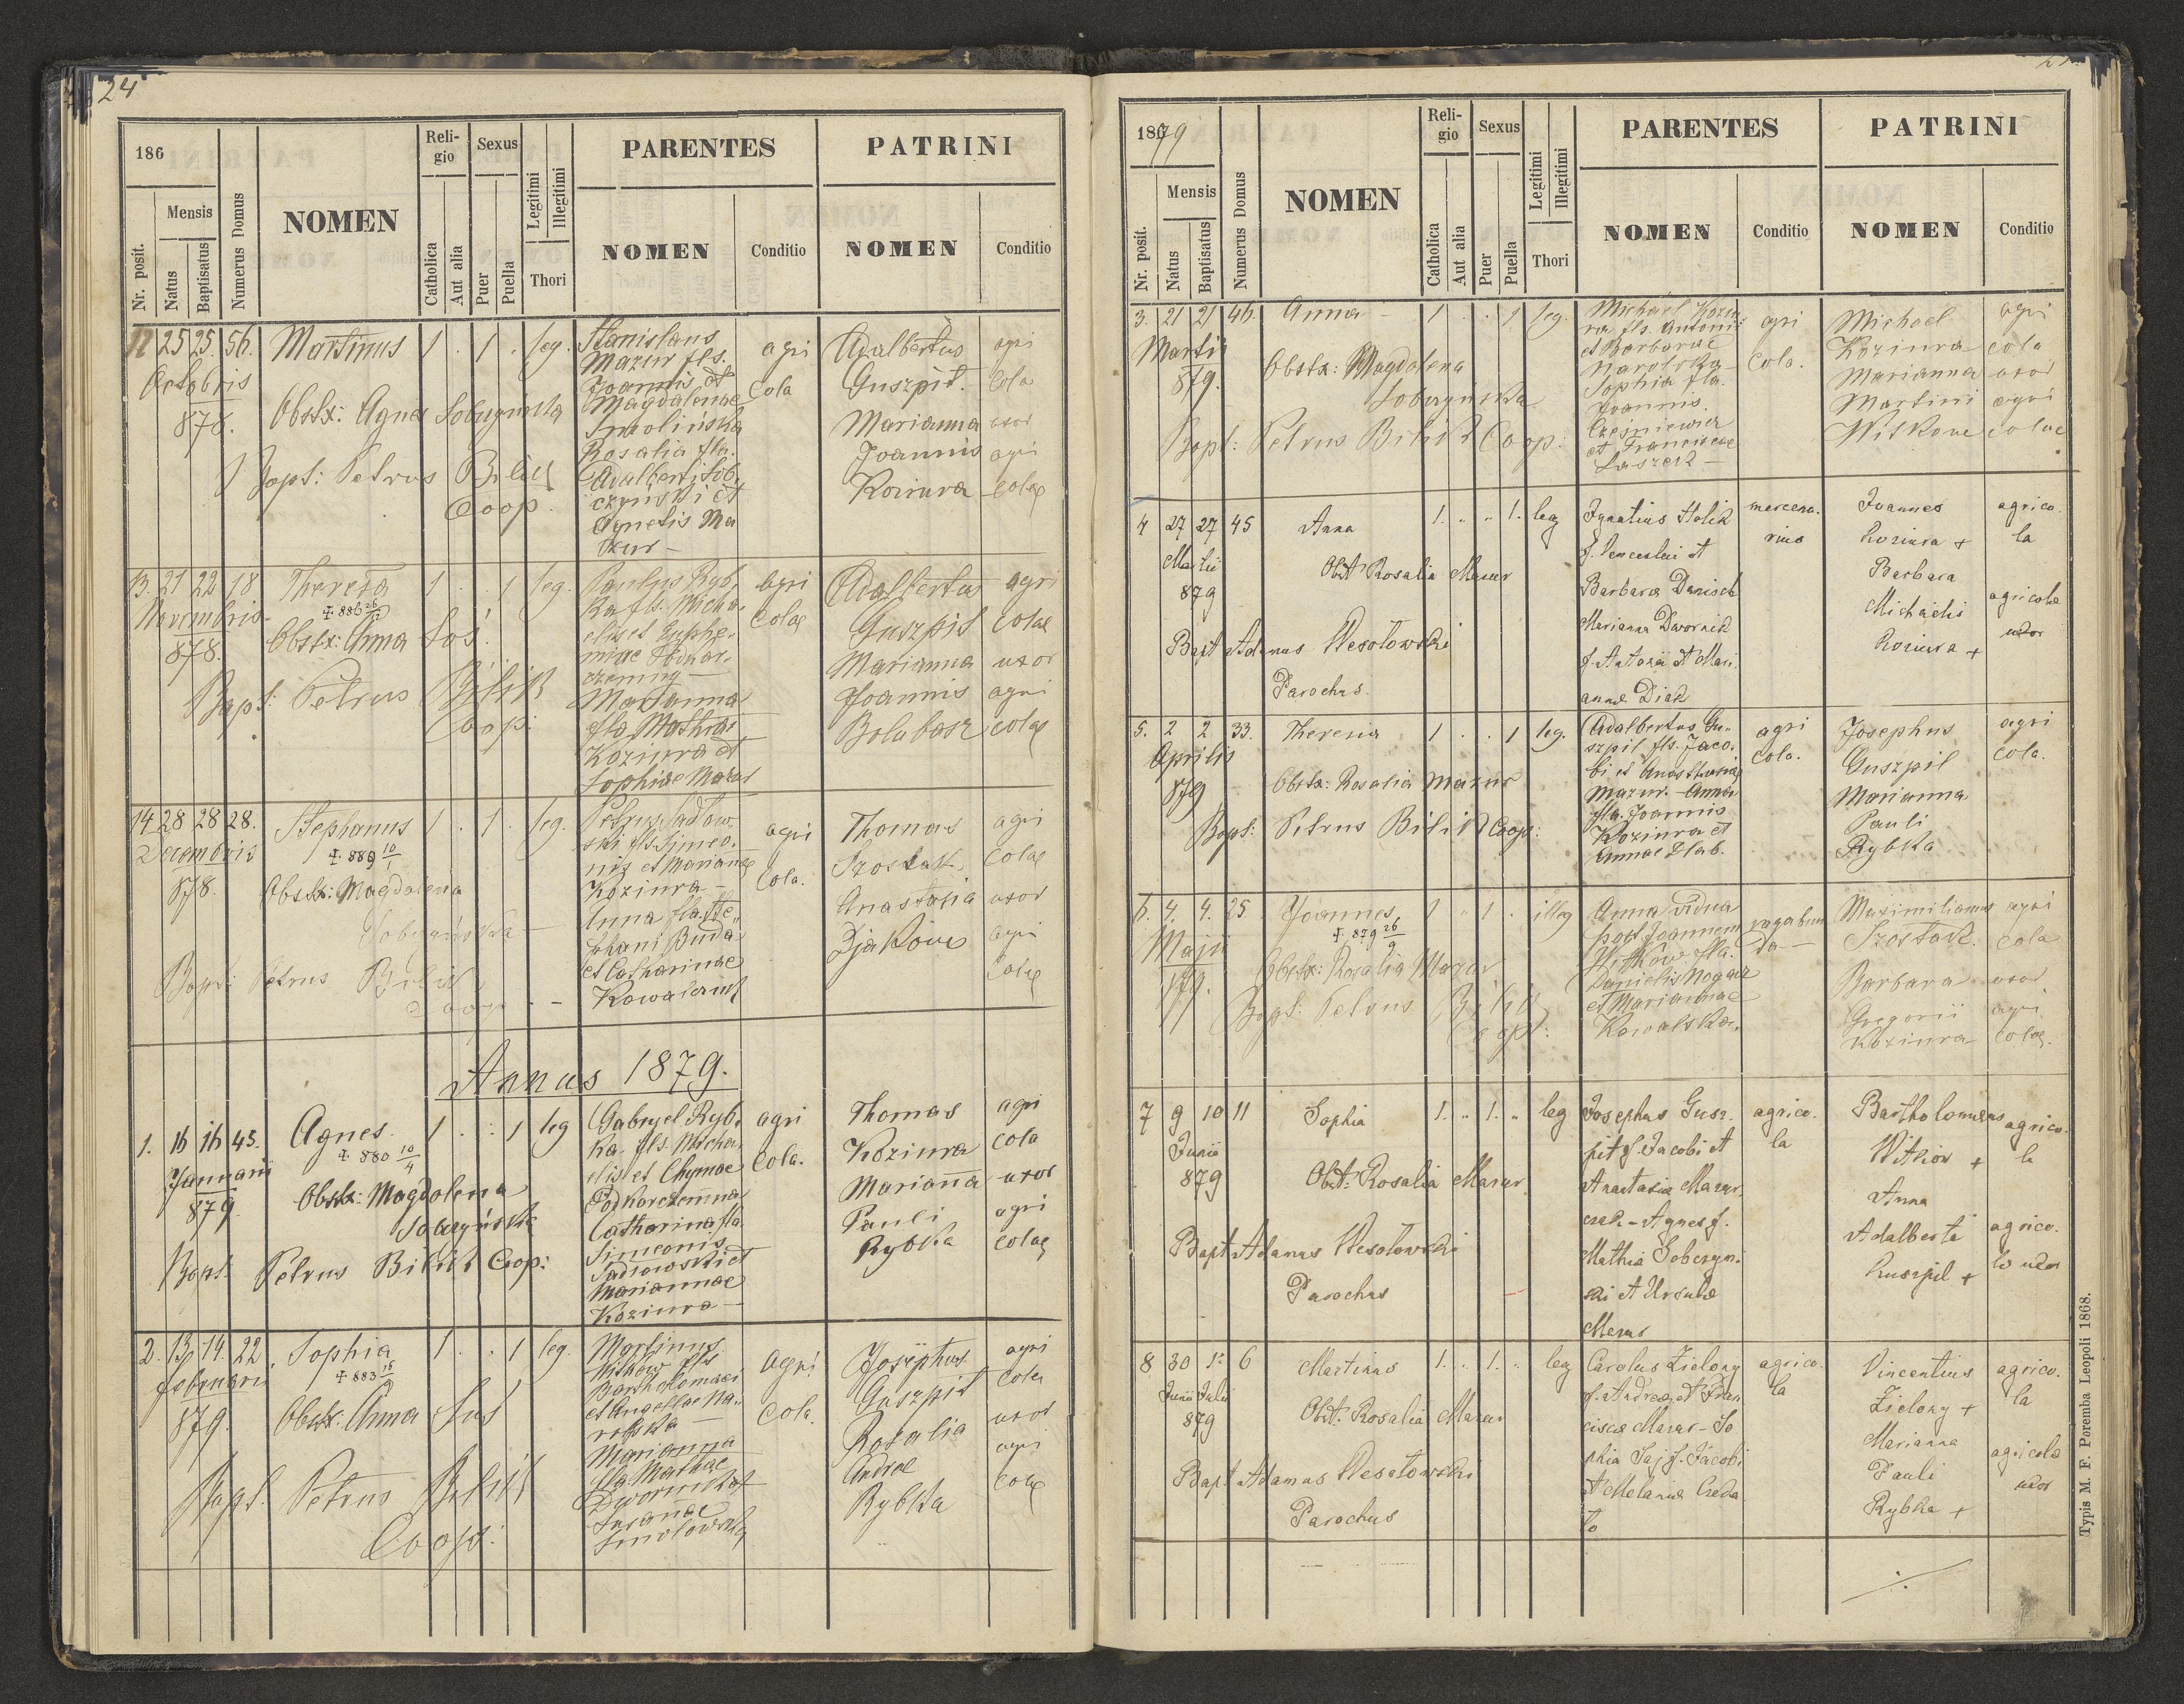 24
186
Nr. posit.
Mensis
Natus
Baptisatus
Numerus Domus
NOMEN
Religio
Catholica
Aut alia
Sexus
Puer
Puella
Legitimi
Illegitimi
Thori
PARENTES
NOMEN
Conditio
PATRINI
NOMEN
Conditio
12 25 25. 56. Martinus 1 . 1 . leg.
Octobris
878.
Obstx: Agnes Sobczyńska
Bapt: Petrus Bilik
Coop.
Stanislaus
Mazur fls.
Joannis et
Magdalenae
Smolińska
Rosalia fla.
Adalberti Sob
czyński et
Agnetis Ma
zur —
agri
cola
Adalbertus
Guszpit.
Marianna
Joannis
Koziura
agri
cola
uxor
agri
colae
13. 21 22 18 Theresa 1 . . 1 leg.
✝ 886
Novembris
878.
Obstx: Anna Soś.
Bapt: Petrus Bilik
Coop:
Paulus Ryb,
ka fls. Micha,
elis et Euphe,
miae
Marianna
fla Mathiae
Koziura et
Sophiae Mazur
agri
colae
Adalbertus
Guszpit
Marianna
Joannis
Bolubasz
agri
colae
uxor
agri
colae
14 28 28 28. Stephanus 1 . 1 . leg.
✝ 889 10/1
Decembris
878.
Obstx: Magdalena
Bapt: Petrus Bilik
Coop
Petrus Sadłow,
ski fls. Simeo,
nis et Marianae
Koziura —
Anna fla. Ste,
phani Buda
et Catharinae
agri
cola.
Thomas
Szostak
Anastasia
Djakow
agri
colae
uxor
agri
colae
Annus 1879.
1. 16 16 45. Agnes 1 . . 1 leg
✝ 880 10/4
Januarii
879
Obstx: Magdalena
Sobczyńska
Bapt. Petrus Bilik Coop:
Gabryel Ryb,
ka fls. Micha,
elis et Chymae
Podkarczemna
Catharina fla
Simeonis
Sadłowski et
Mariannae
Koziura —
agri
cola.
Thomas
Koziura
Marianna
Pauli
Rybka
agri
cola
uxor
agri
colae
2. 13. 14. 22 Sophia 1 . . 1 leg.
✝ 883
februarii
879.
Obstx: Anna Sus
Bapt. Petrus Bilik
Coop:
Martinus
Witkow fls
Bartholomaei
et Angellae Na,
rolska —
Marianna
fla Mathiae
Dwornik et
Susannae
agri
cola.
Josephus
Guszpit
Rosalia
Andreae
Rybka
agri
cola
uxor
agri
colae
1879
Nr. posit.
Mensis
Natus
Baptisatus
Numerus Domus
NOMEN
Religio
Catholica
Aut alia
Sexus
Puer
Puella
Legitimi
Illegitimi
Thori
PARENTES
NOMEN
Conditio
PATRINI
NOMEN
Conditio
3. 21 21 46. Anna — 1 . . 1 leg.
Martii
879.
Obstx: Magdalena
Sobczyńska
Bapt: Petrus Bilik Coop:
Michael Koziu,
ra fls. Antonii
et Barbarae
Narolska —
Sophia fla.
Joannis.
Cześniewicz
et Franciscae
Laszek —
agri
cola.
Michael
Koziura
Marianna
Martini
Witkow
agri
cola
uxor
agri
colae
4 27 27 45 Anna 1. " " 1. leg
Martii
879
Obst Rosalia Mazur
Bapt Adamus Wesołowski
Parochus.
Ignatius Holik
f. Venceslai et
Barbara Danisch
Marianna Dwornik
f. Antonii et Mari
anna Diak
mercena.
rius
Joannes
Koziura +
Barbara
Michaelis
Koziura +
agrico.
la
agricolae
uxor
5. 2 2 33. Theresia 1 . . 1 leg.
Aprilis
879
Obstx: Rosalia Mazur
Bapt: Petrus Bilik Coop:
Adalbertus Gu,
szpil fls. Jaco,
bi et Anasthasiae
Mazur. — Anna
fla. Joannis
Koziura et
Annae Drab.
agri
cola.
Josephus
Guszpil
Marianna
Pauli
Rybka
agri
cola.
6. 4. 4. 25 Joannes 1 " 1 . illeg
✝ 879 26/9
Maji
879.
Obstx: Rosalia Mazur
Bapt: Petrus Bilik
Coop:
Anna vidua
post Joannem
Witkow fla.
Danielis
et Mariannae
Kowalska.
vagabun
da —
Maximilianus
Szostak.
Barbara
Gregorii
Koziura
agri
cola
uxor
agri
colae.
7 9 10 11 Sophia 1. " 1. " leg
Junii
879
Obst: Rosalia Mazur
Bapt Adamus Wesołowski
Parochus
Josephus Gusz.
pit f. Jacobi et
Anastasia Mazur.
czak — Agnes f.
Mathia Sobczyń.
ski et Ursula
Mazur
agrico.
la
Bartholomeus
Witkow +
Anna
Adalberti
Guszpil +
agrico.
la
agrico.
la uxor
8 30 1. 6 Martinus 1. " 1. " leg
Junii Julii
879
Obst: Rosalia Mazur
Bapt Adamus Wesołowski
Parochus
Carolus Zielony
f. Andreae et Fran
cisca Mazur — So
phia Saj f. Jacobi
et Melania
agrico.
la
Vincentius
Zielony +
Marianna
Pauli
Rybka +
agrico.
la
agricola
uxor
Typis M. F. Poremba Leopoli 1868.